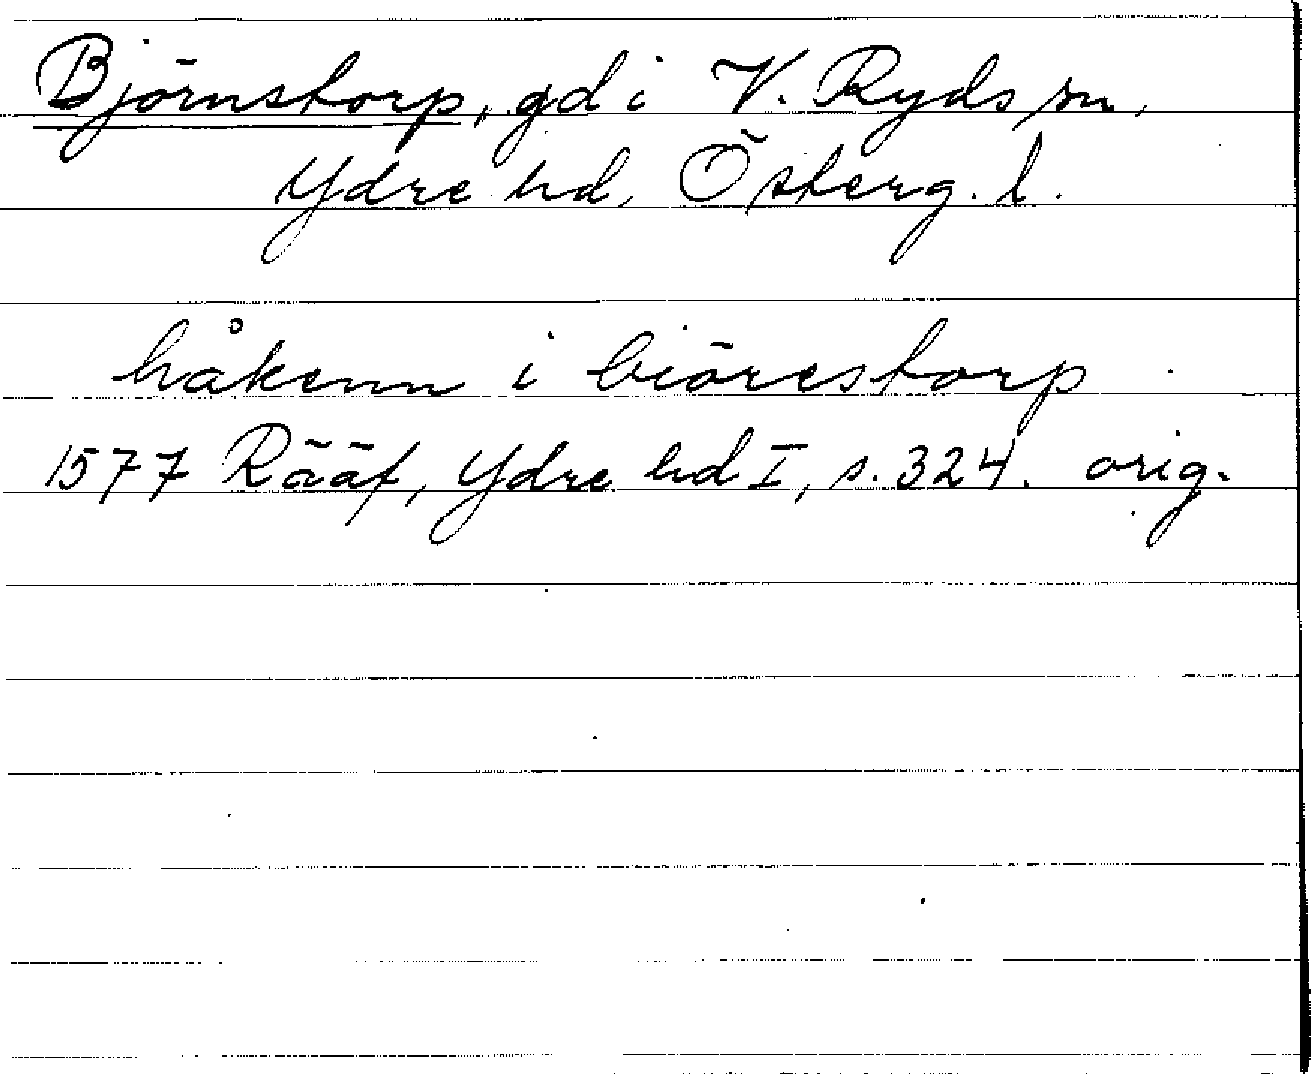 Björnstorp, gd i V. Ryds sn,
Ydre hd, Österg. l.
håkenn i biörestorp
1577 Rääf, Ydre hd I, s. 324. orig.